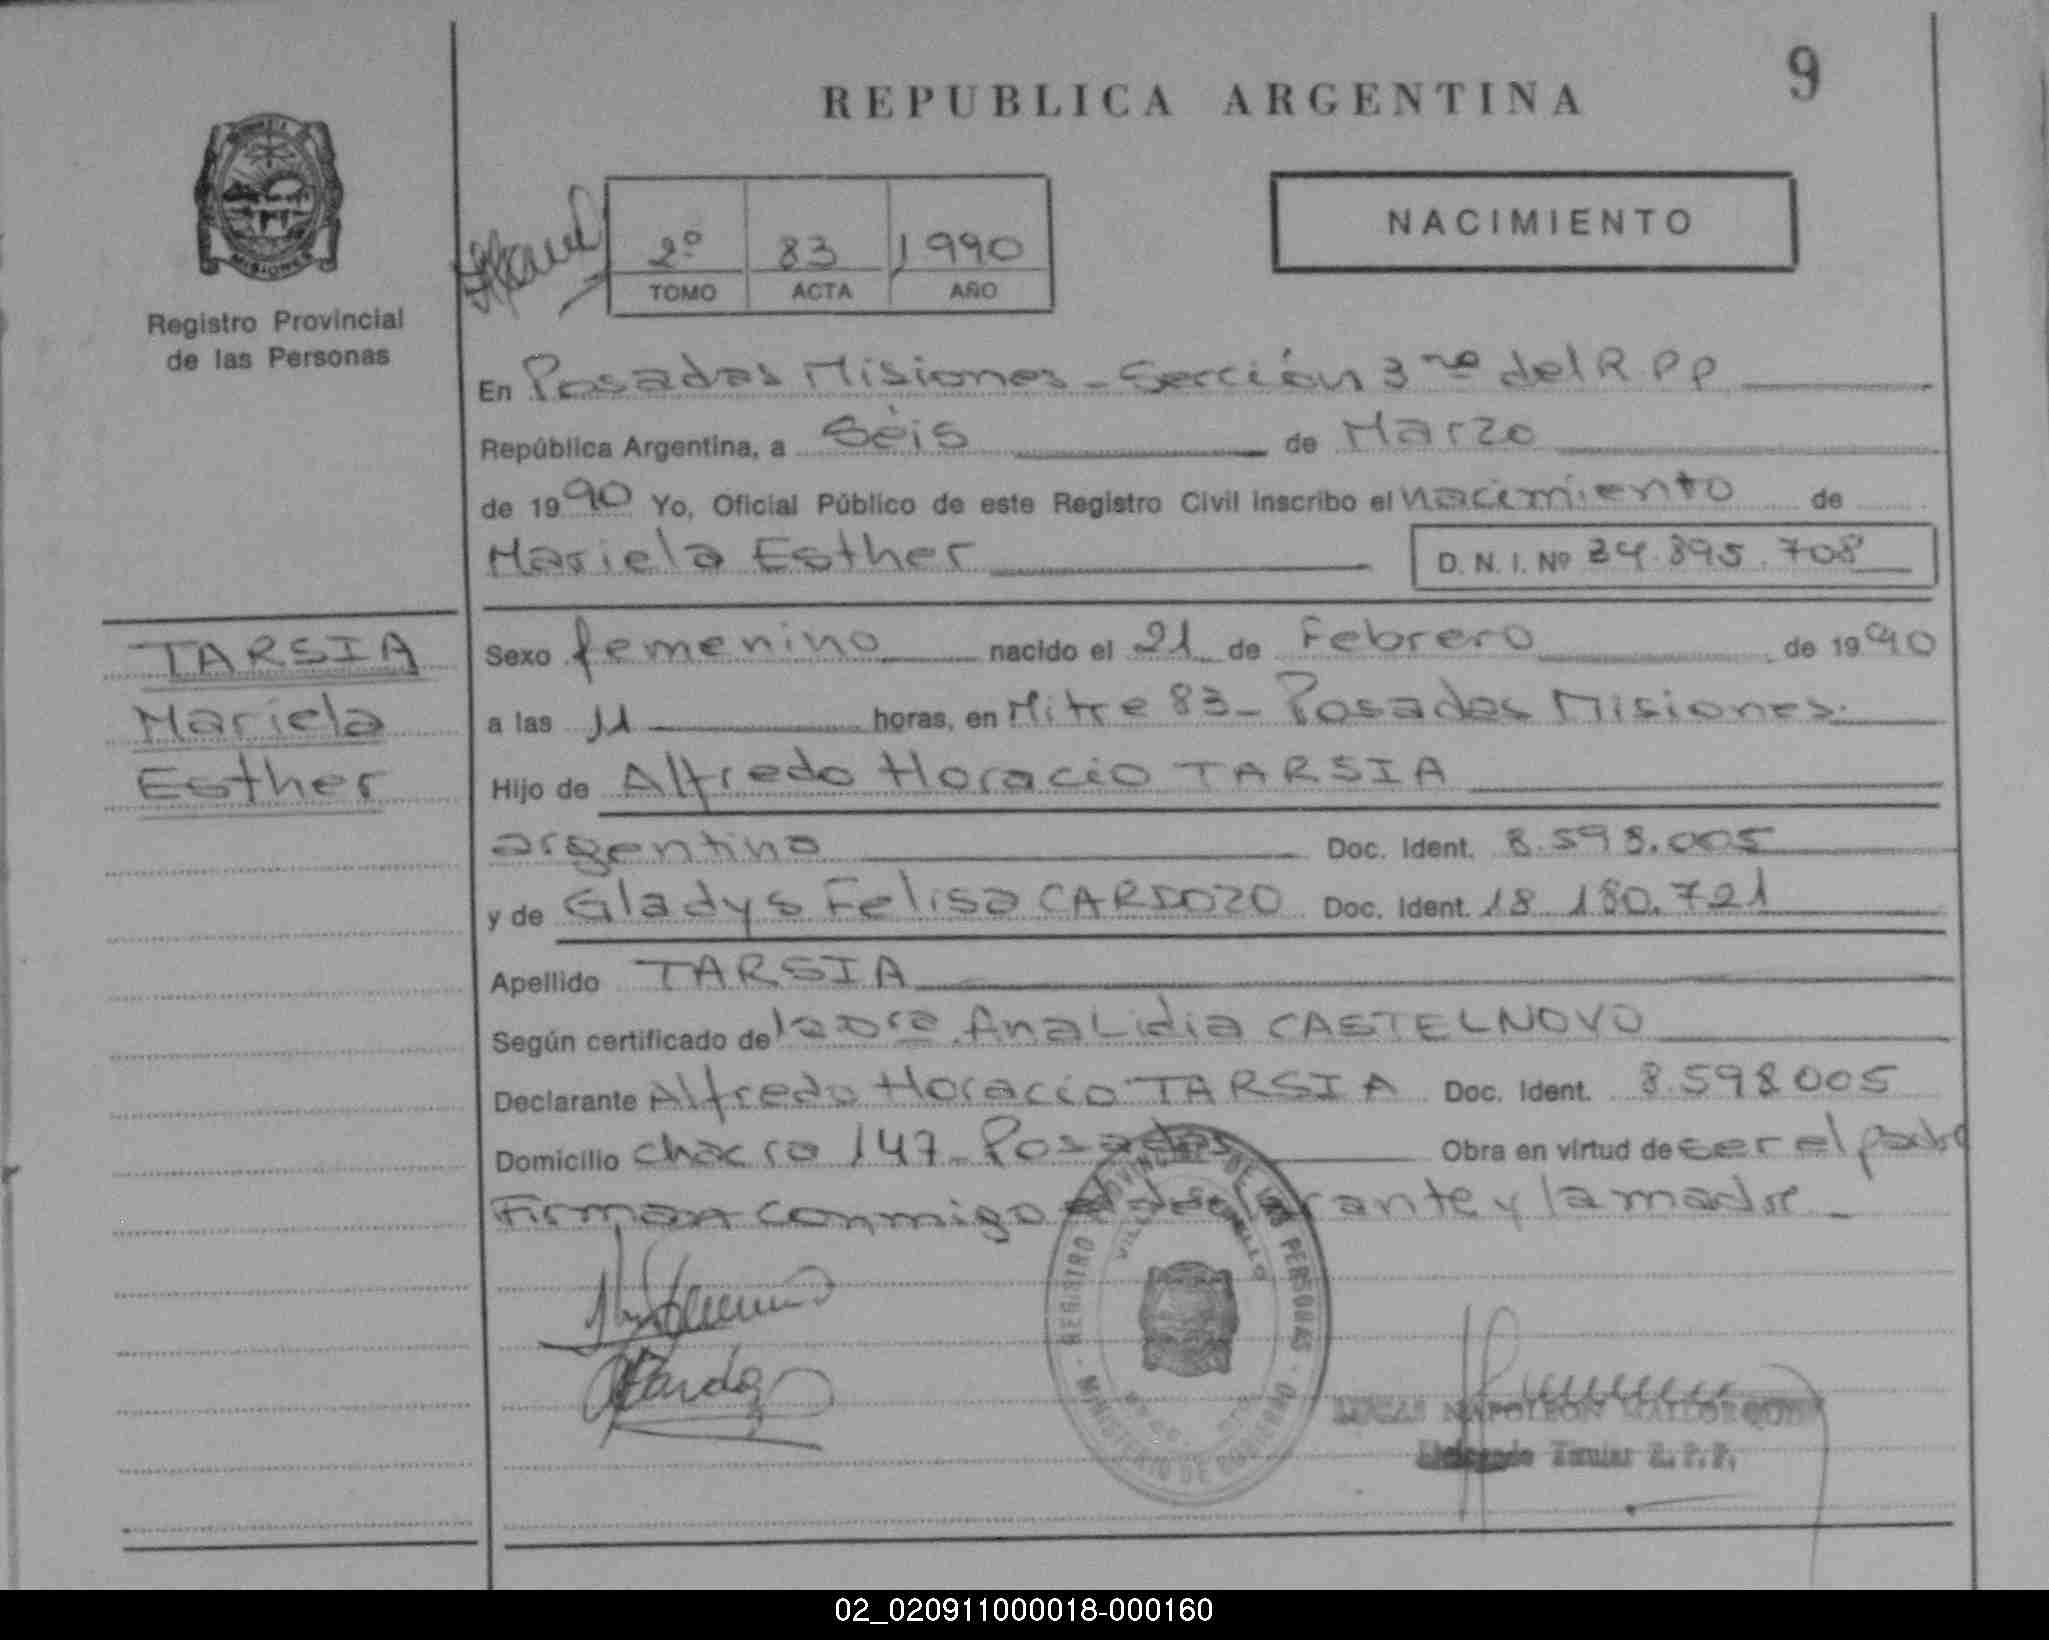 REPUBLICA ARGENTINA
9
MISIONES
Registro Provincial
de las Personas
2º 83 1990
TOMO ACTA AÑO
NACIMIENTO
En Posadas Misiones - Sección 3ra del R P P
República Argentina, a Séis de Marzo
de 1990 Yo, Oficial Público de este Registro Civil inscribo el nacimiento de
Mariela Esther D. N. I. Nº 34.895.708
TARSIA
Mariela
Esther
Sexo femenino nacido el 21 de Febrero de 1990
a las 11 horas, en Mitre 83 - Posadas Misiones.
Hijo de Alfredo Horacio TARSIA
argentino Doc. Ident. 8.598.005
y de Gladys Felisa CARDOZO Doc. Ident. 18.180.721
Apellido TARSIA
Según certificado de la Dra. Ana Lidia CASTELNOVO
Declarante Alfredo Horacio TARSIA Doc. Ident. 8.598005
Domicilio chacra 147 - Posadas Obra en virtud de ser el padre
Firman conmigo el declarante y la madre -
REGISTRO PROVINCIAL DE LAS PERSONAS
MINISTERIO DE GOBIERNO
LUCAS NAPOLEON
Delegado Titular R. P. P.
02_020911000018-000160